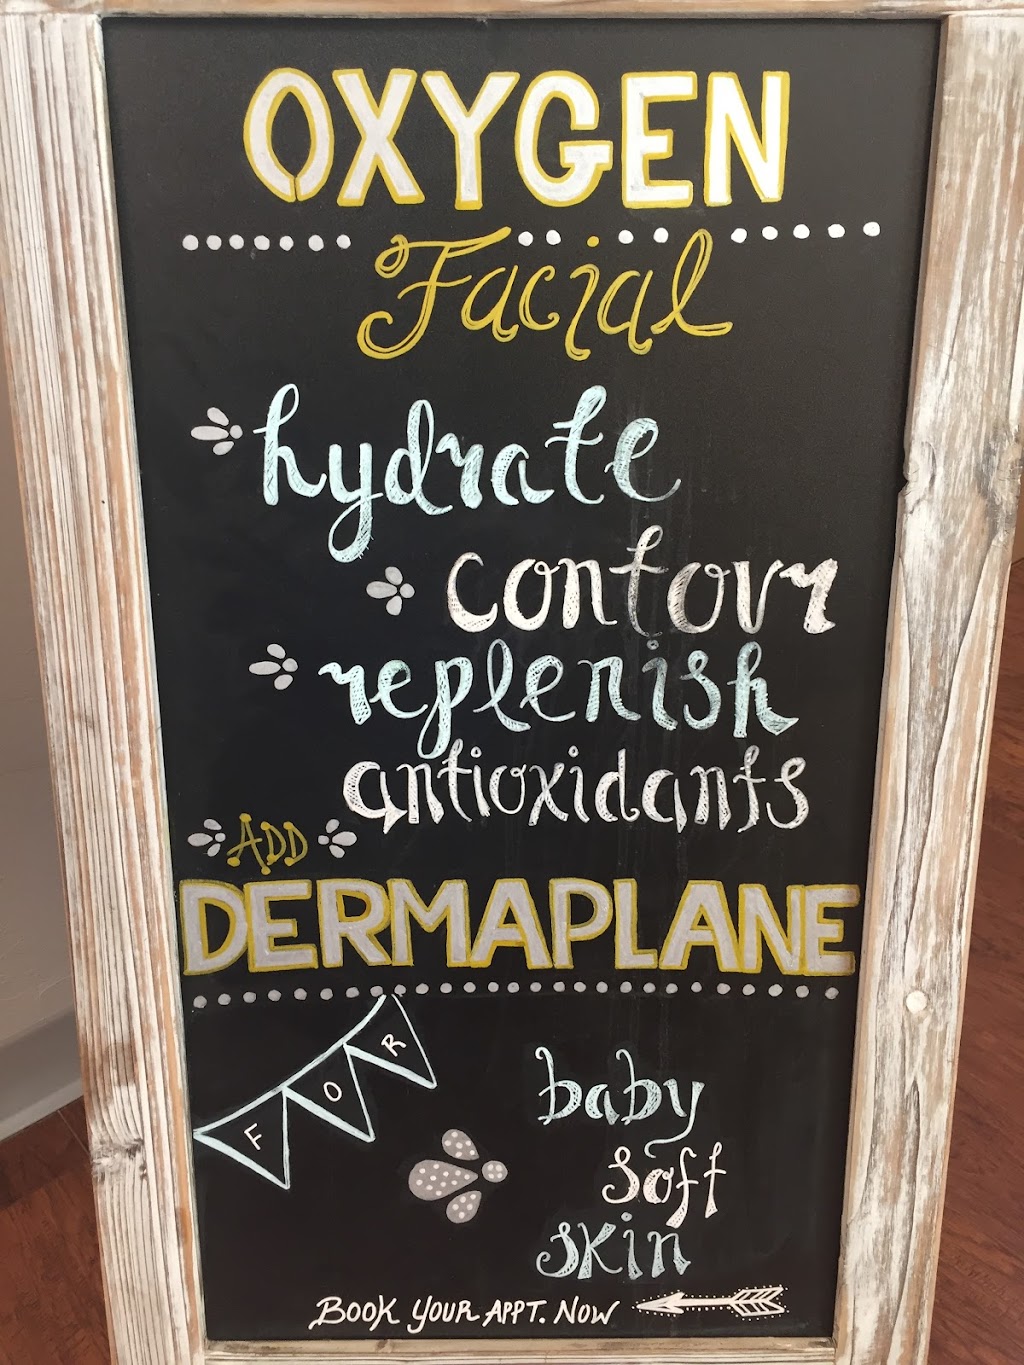 OXYGEN
Facial
hydrate
contour
replenish
antioxidants
ADD
DERMAPLANE
FOR
baby
soft
skin
BOOK YOUR APPT. NOW